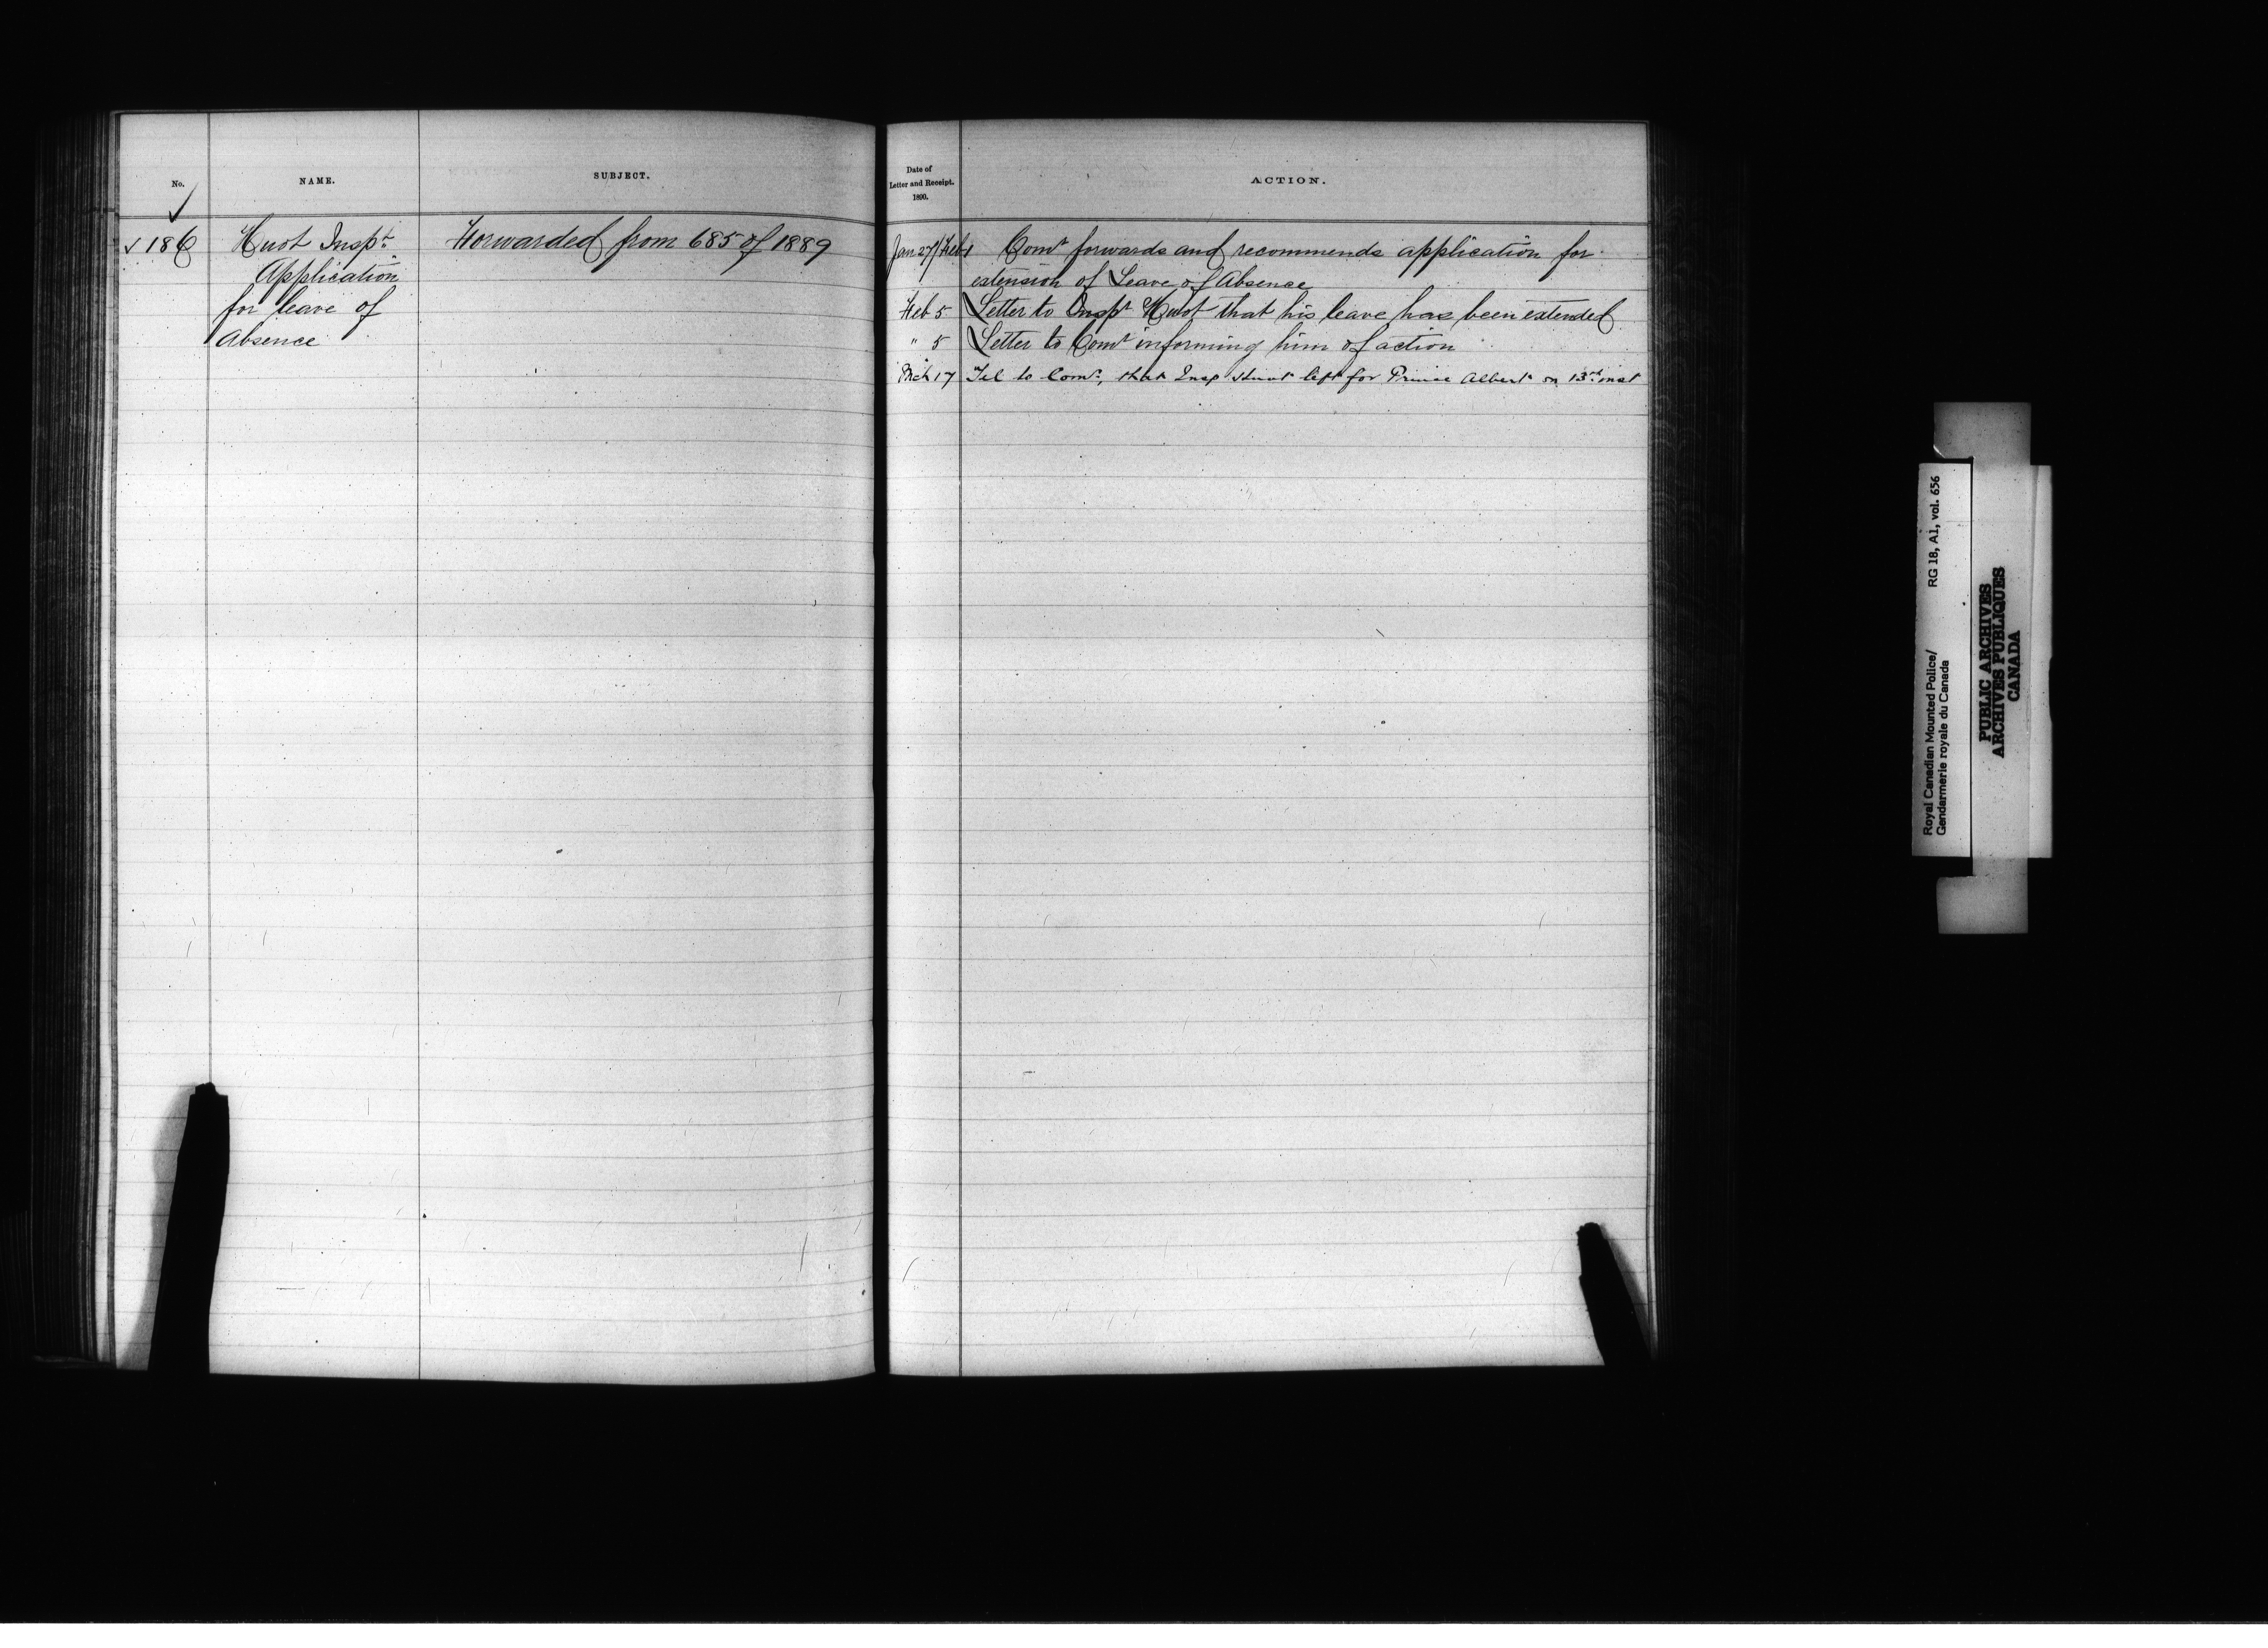 No.
NAME.
SUBJECT.
✓
✓ 186
Huot Inspt
Application
for leave of
Absence
Forwarded from 685 of 1889
Date of
Letter and Receipt.
1890.
ACTION.
Jan 27/Feb 1 Comr forwards and recommends application for
extension of Leave of Absence
Feb 5 Letter to Inspr Huot that his leave has been extended
" 5 Letter to Comr informing him of action
Mch 17 Tel to Comr, that Insp Huot left for Prince Albert on 13th inst
Royal Canadian Mounted Police/ RG 18, A1, vol. 656
Gendarmerie royale du Canada
PUBLIC ARCHIVES
ARCHIVES PUBLIQUES
CANADA